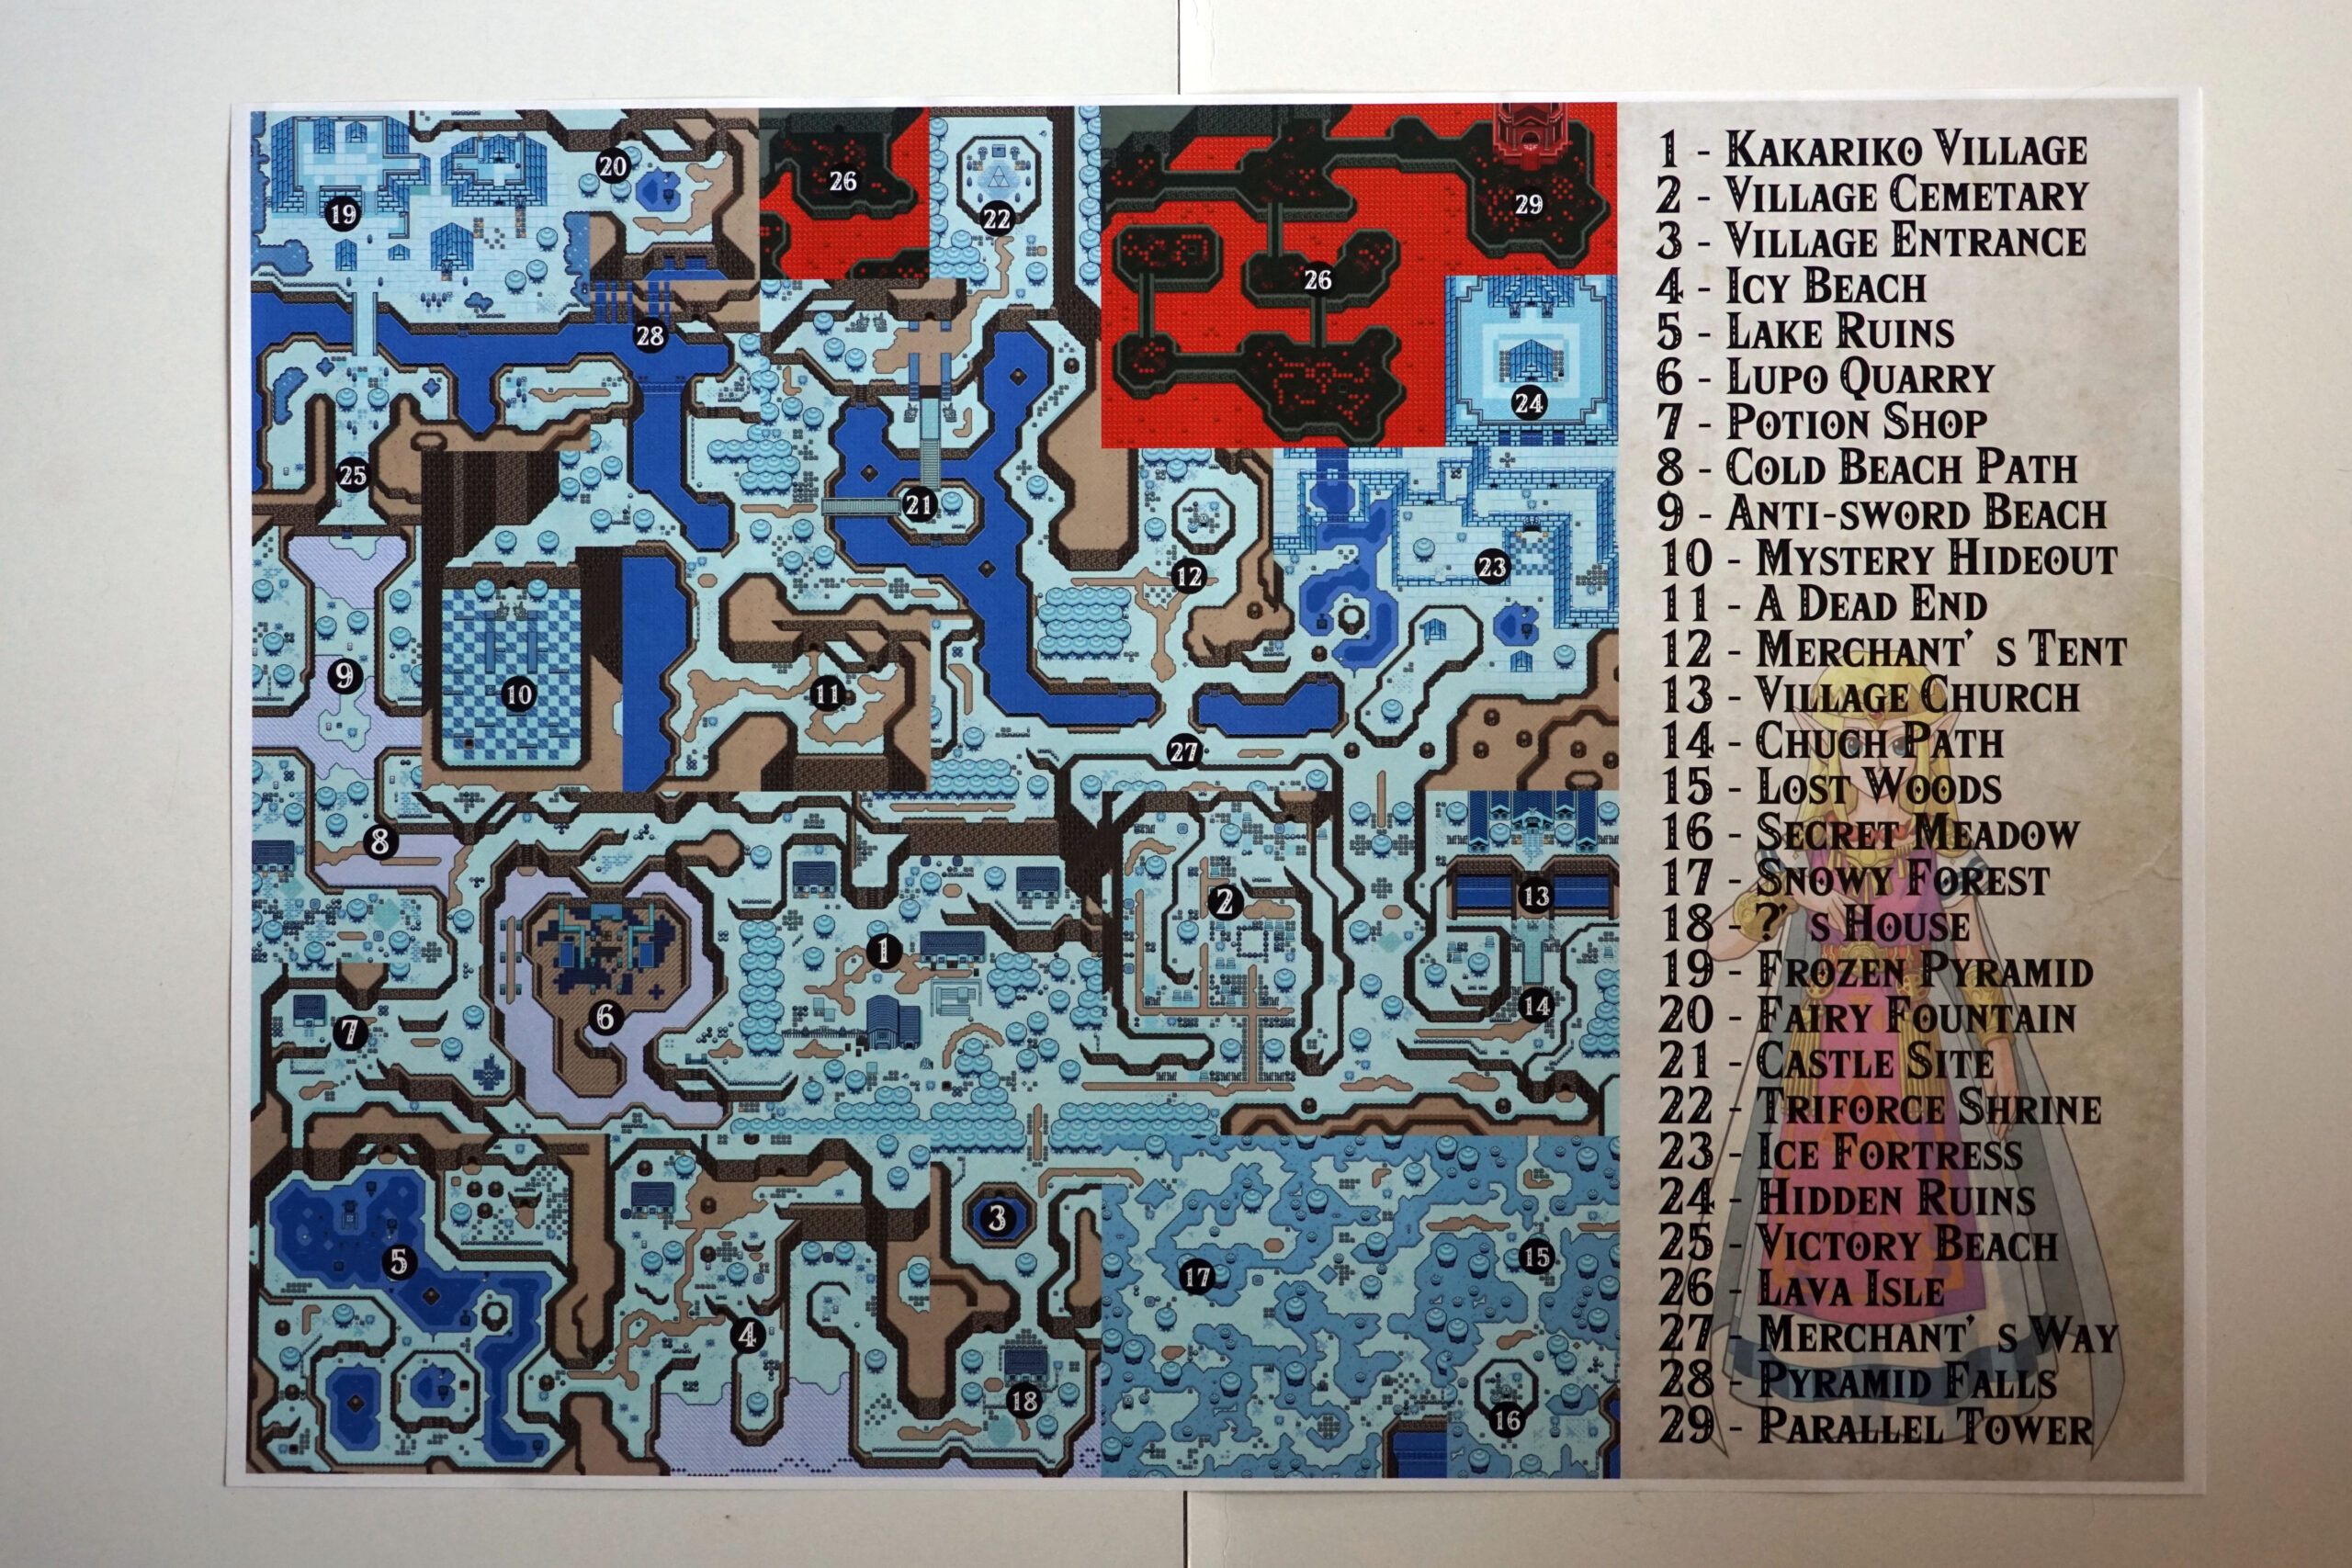 20
26
22
29
19
26
28
24
25
21
12
23
9
10
11
27
8
2
13
1
6
14
7
3
5
17
15
4
18
16
1 - Kakariko Village
2 - Village Cemetary
3 - Village Entrance
4 - Icy Beach
5 - Lake Ruins
6 - Lupo Quarry
7 - Potion Shop
8 - Cold Beach Path
9 - Anti-sword Beach
10 - Mystery Hideout
11 - A Dead End
12 - Merchant's Tent
13 - Village Church
14 - Chugh Path
15 - Lost Woods
16 - Secret Meadow
17 - Snowy Forest
18 - ?'s House
19 - Frozen Pyramid
20 - Fairy Fountain
21 - Castle Site
22 - Triforce Shrine
23 - Ice Fortress
24 - Hidden Ruins
25 - Victory Beach
26 - Lava Isle
27 - Merchant's Way
28 - Pyramid Falls
29 - Parallel Tower